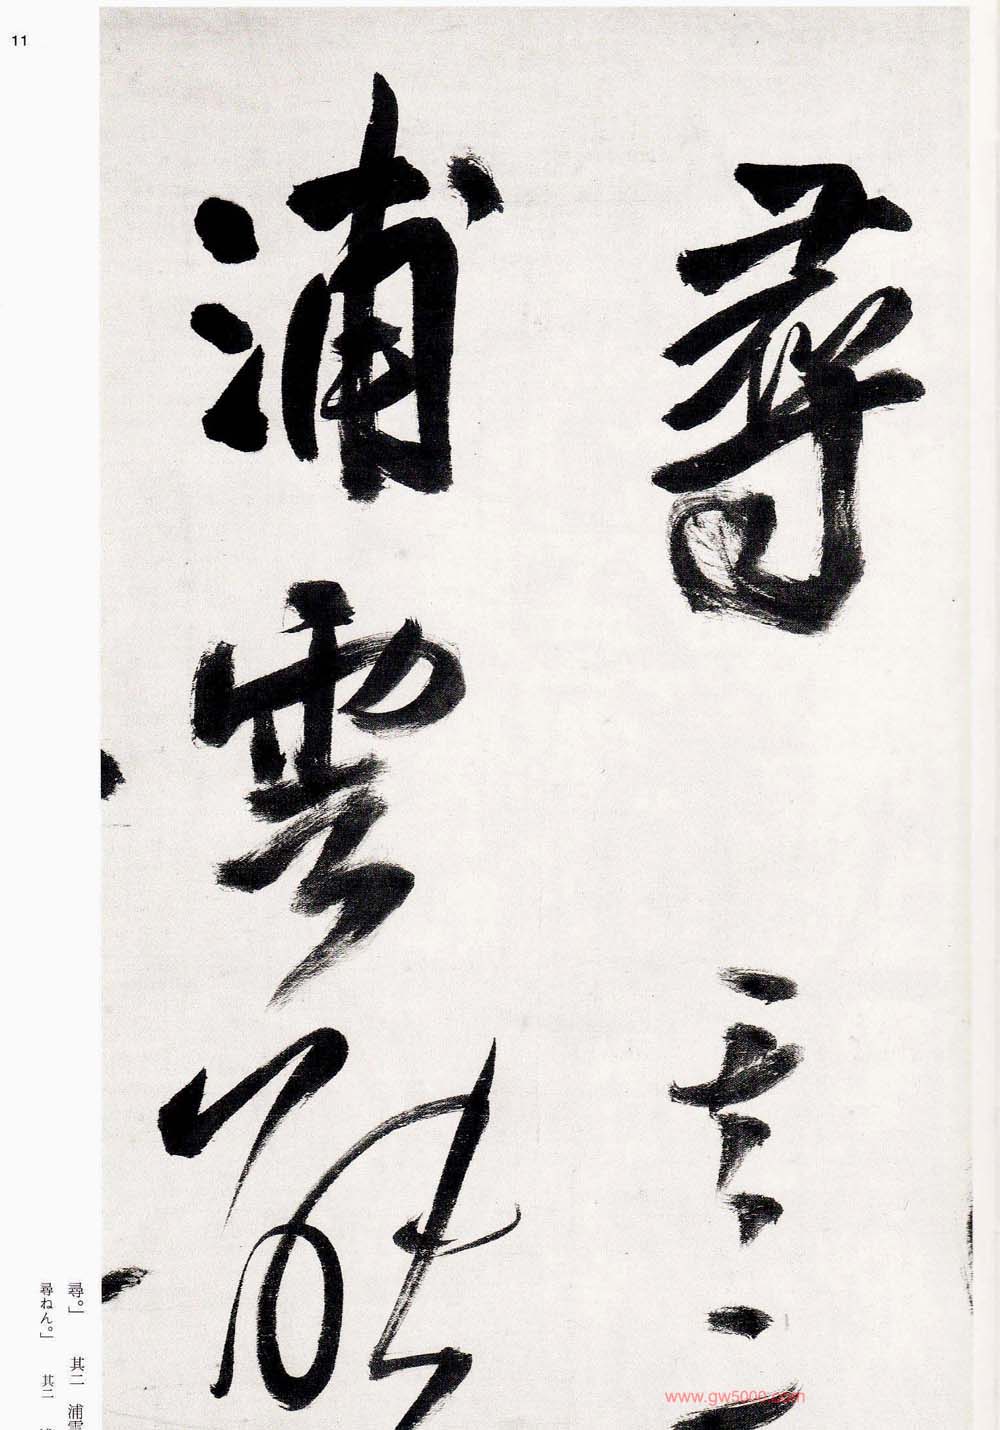 11
尋其二
浦雲解
尋。」 其二 浦雲
尋ねん。」 其二
www.gw5000.com